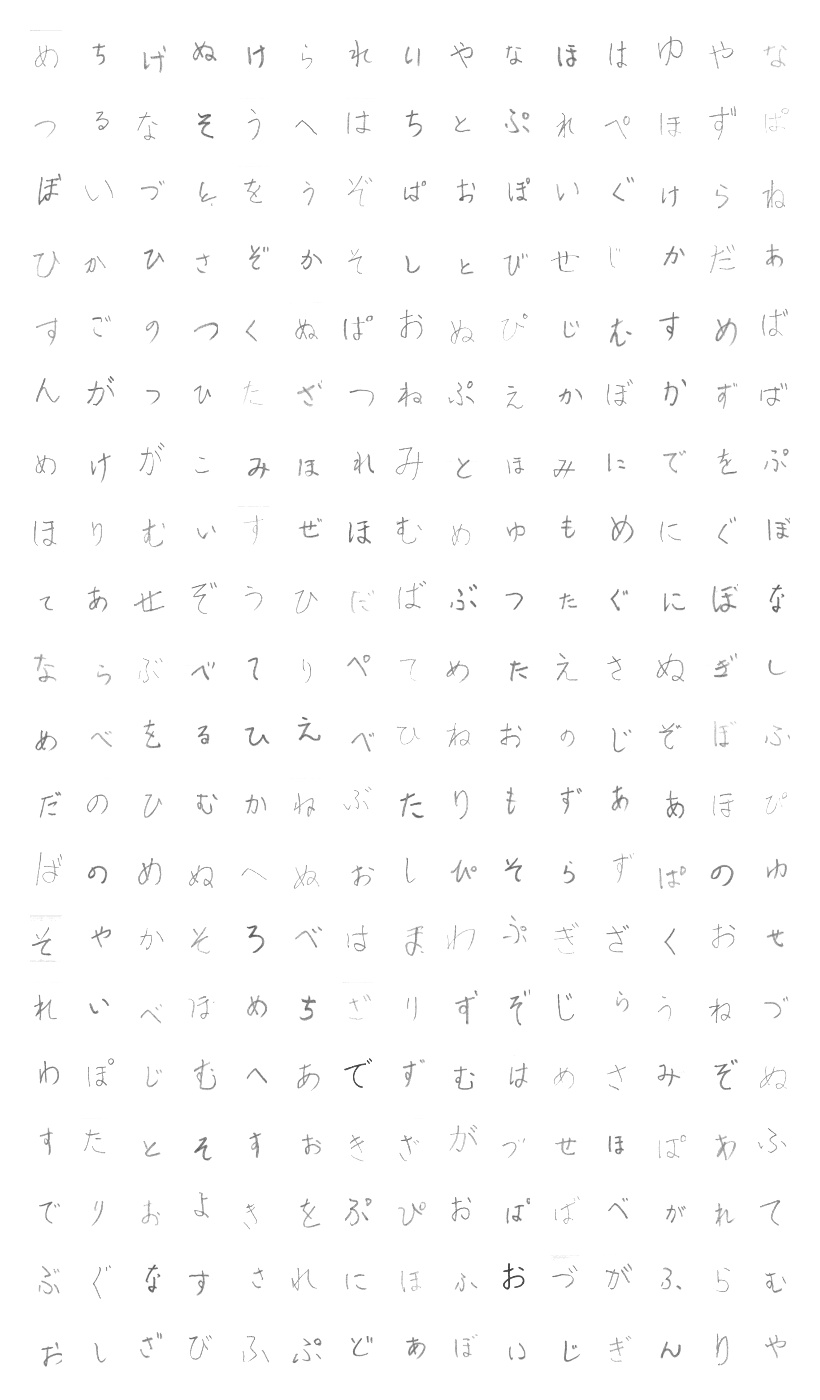 めちげぬけられいやなほはゆやな
つるなそうへはちとぷれぺほずぱ
ぼいづとをうぞぱおぽいぐけらね
ひかひさぞかそしとびせじかだあ
すごのつくぬぱおぬぴじむすめば
んがっひたざつねぷえかぼかずば
めけがこみほれみとほみにでをぷ
ほりむいすぜほむめゆもめにぐぼ
てあせぞうひだばぶつたぐにぼな
ならぶべてりぺてめたえさぬぎし
めべをるひえべひねおのじぞぼふ
だのひむかねぶたりもずああほぴ
ばのめぬへぬおしぴそらずぱのゆ
そやかそろべはまわぷぎざくおせ
れいべほめちざりずぞじらうねづ
わぽじむへあでずむはめさみぞぬ
すたとそすおきざがづせほぱわふ
でりおよきをぷぴおぱばべがれて
ぶぐなすされにほふおづがふらむ
おしざびふぷどあぼいじぎんりや